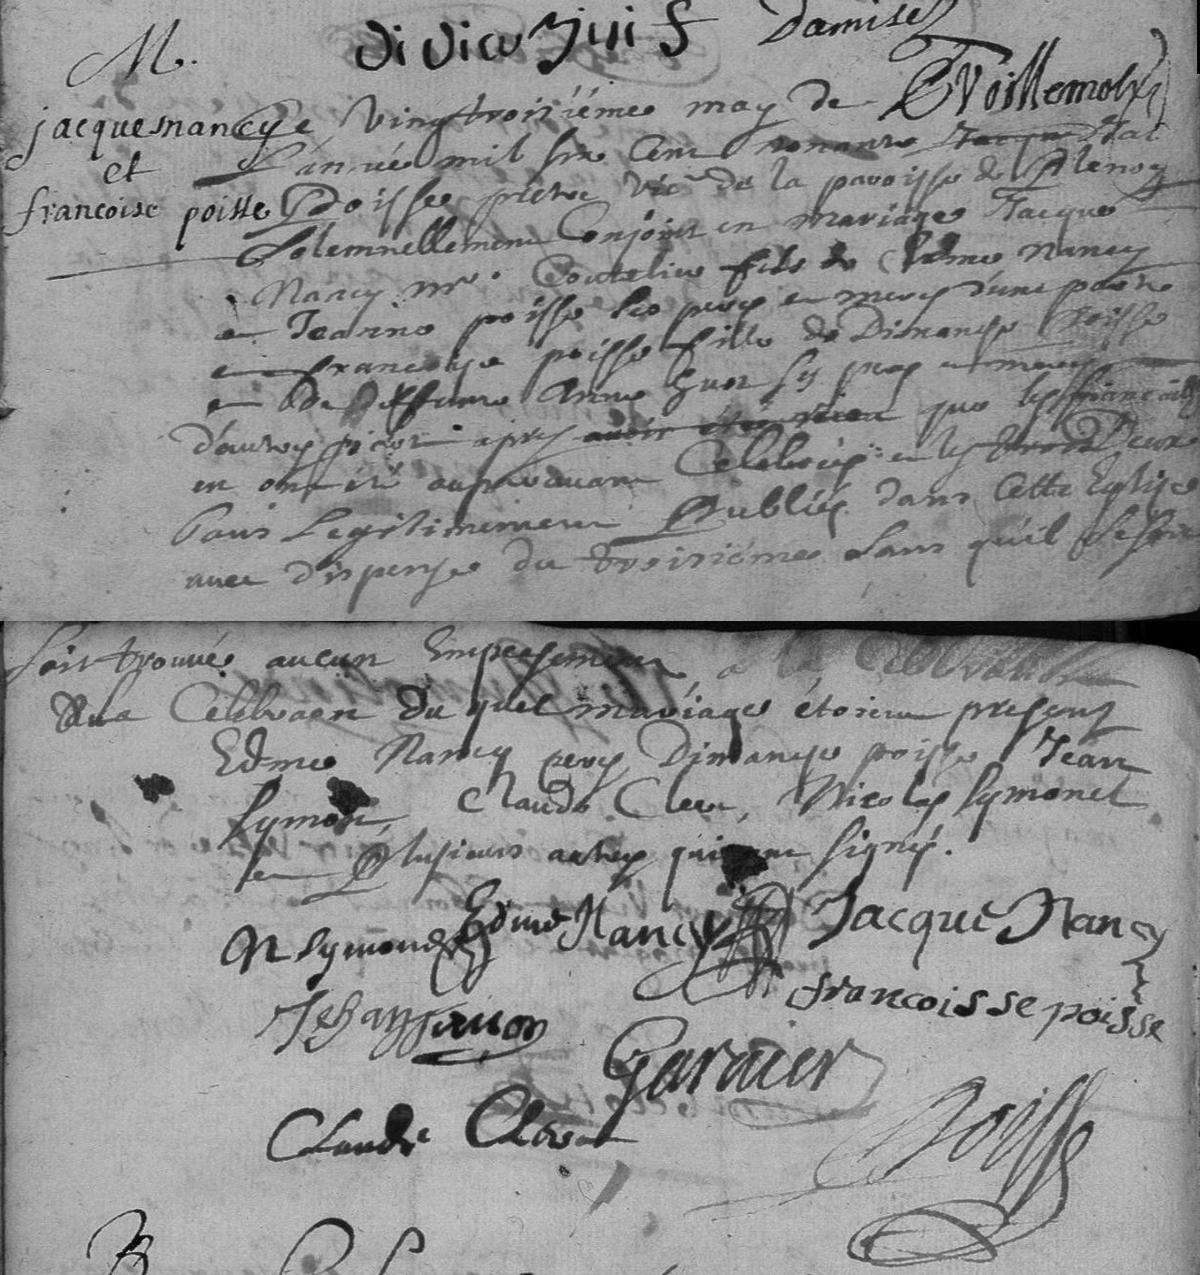 didier Juif Damise
M. CVoillemot
jacques nancy Le Vingt troisiéme may de
et L'année mil six Cent nonante Jacque Jac
francoise poisse Poisse pretre vic. de la paroisse de
Solemnellement Conjoint en mariage Jacque
Nancy mre. Coutelier fils de Edme Nancy
et Jeanne poisse ses pere et mere d'une part
et francoise poisse fille de Dimanche Poisse
et de deffunte Anne sy pere et mere
d'autre part apres que les fiancailles
en ont été auparavant Celebrés et les deux
bans Legitimement Publiés dans Cette Eglise
avec dispense du troisiéme sans qu'il se soit
soit trouvé aucun Empeschement a la Celebration
Celebraon du quel mariage étoient presens
Edme Nancy pere Dimanche poisse Jean
Symon, Claude Clerc, Nicolas Symonel
et Plusieurs autres qui ont signé.
N Symonel Edme Nancy Jacque Nancy
francoisse poisse
Jehan simon
Garnier
Claude Clerc
Poisse